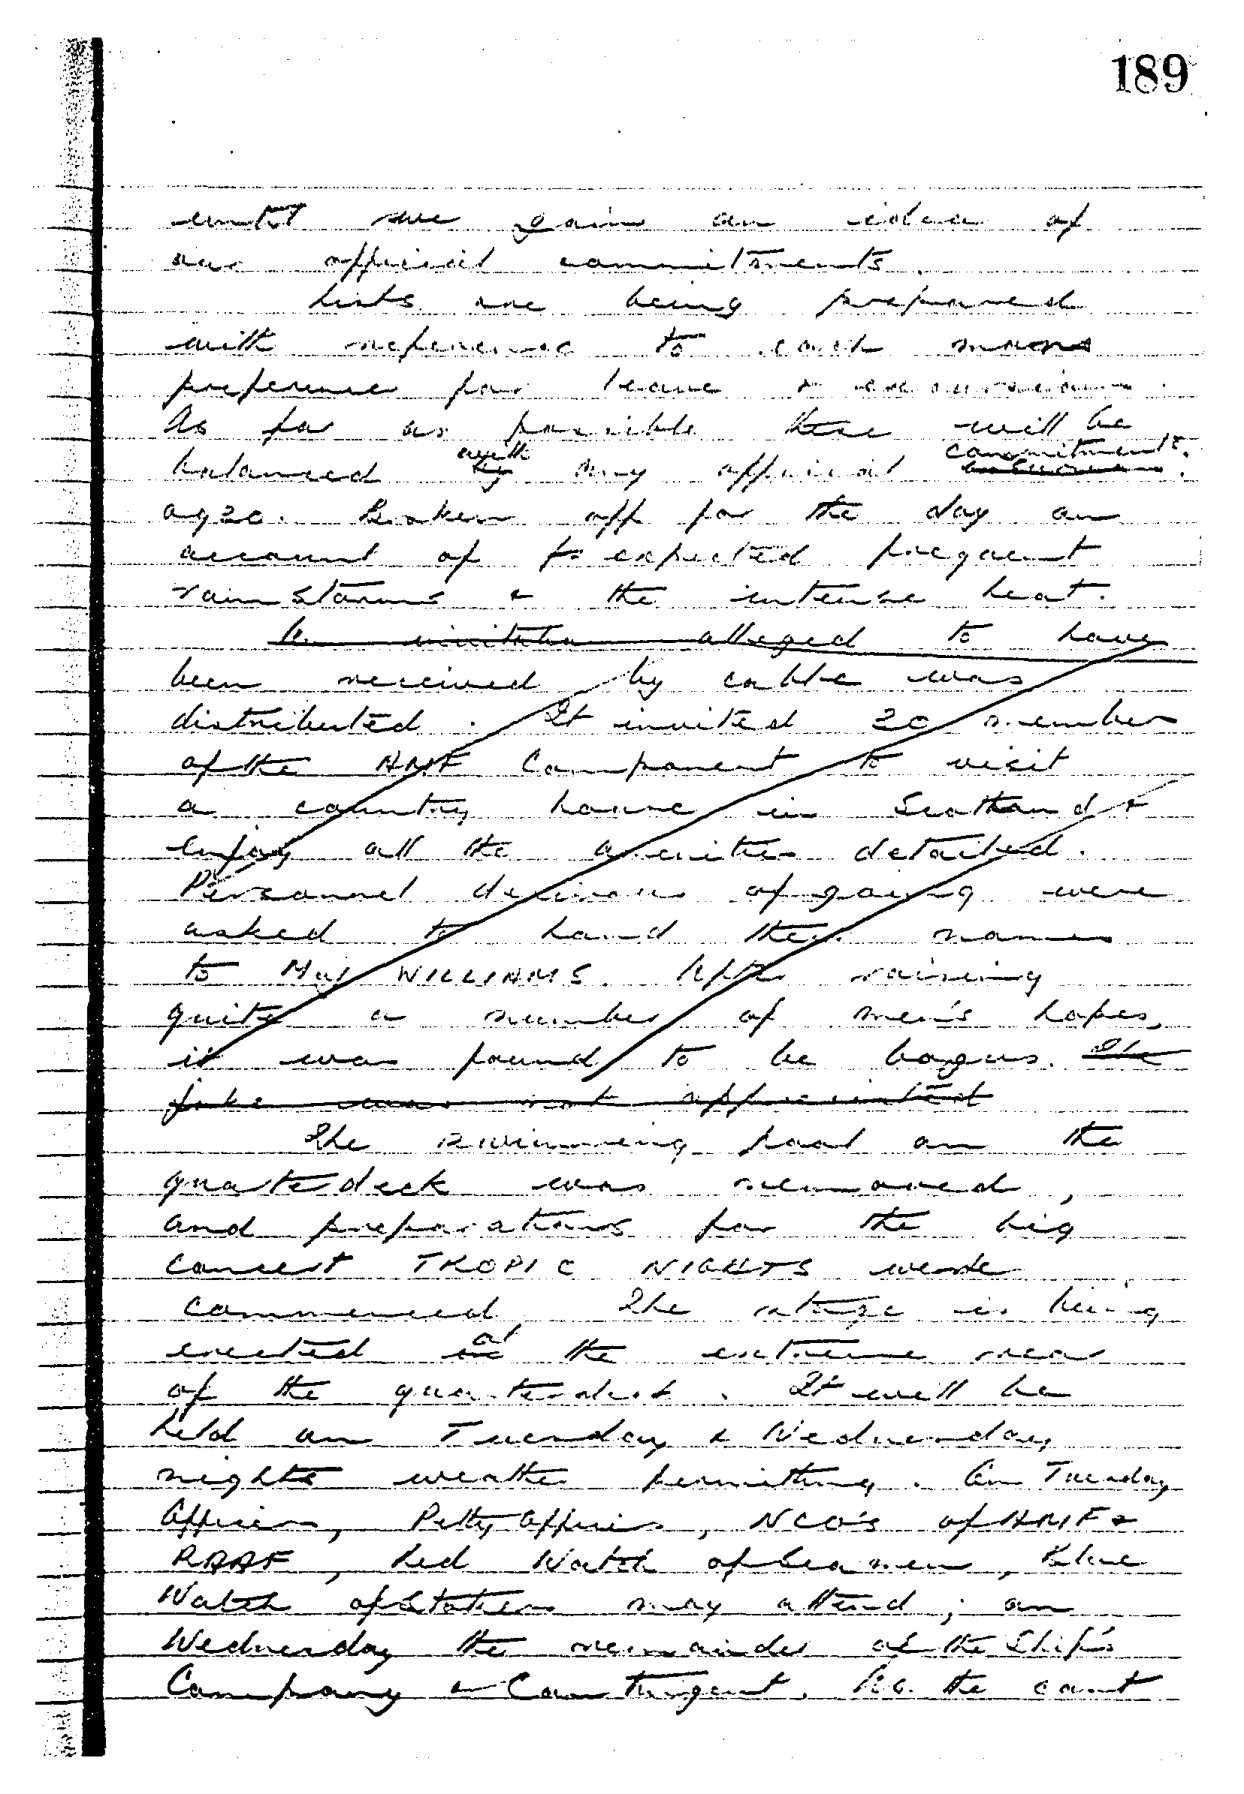 189
until we gain an idea of
our official commitments.
Lists are being prepared
with reference to each mans
preference for leave & excursions.
As far as possible these will be
with commitments.
balanced by any official excursions.
0930. Broken off for the day on
account of to expected frequent
rain storms & the intense heat.
An invitation alleged to have
been received by cable was
distributed. It invited 20 members
of the AMF Component to visit
a country house in Scotland &
enjoy all the amenities detailed.
Personnel desirous of going were
asked to hand their names
to Maj WILLIAMS. After raising
quite a number of men's hopes,
it was found to be bogus. The
joke was not appreciated
The swimming pool on the
quarterdeck was removed,
and preparations for the big
concert TROPIC NIGHTS were
commenced. The stage is being
at
erected on the extreme rear
of the quarterdeck. It will be
held on Tuesday & Wednesday
nights weather permitting. On Tuesday
Officers, Petty Officers, NCO's of AMF &
RAAF, Red Watch of Seamen, Blue
Watch of Stokers may attend; on
Wednesday the remainder of the Ship's
Company & Contingent. As the cast